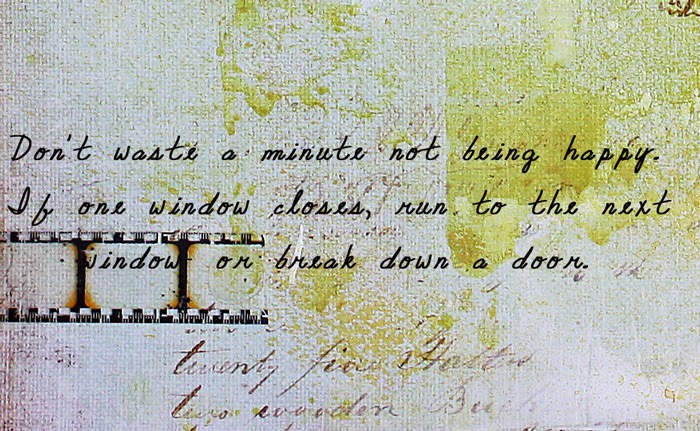 Don't waste a minute not being happy.
If one window closes, run to the next
window or break down a door.
twenty five
two wooden